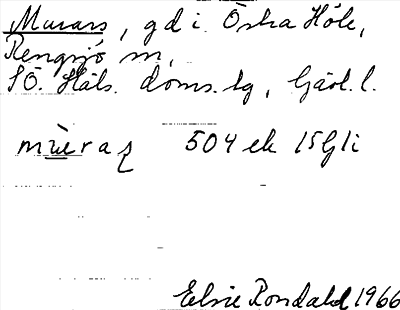 Murars, gd i Östra Höle,
Rengsjö sn,
SÖ. Häls. doms.lg, Gävl. l.
mùeraʂ 504 ek 15Gli
Elsie Rondahl 1966